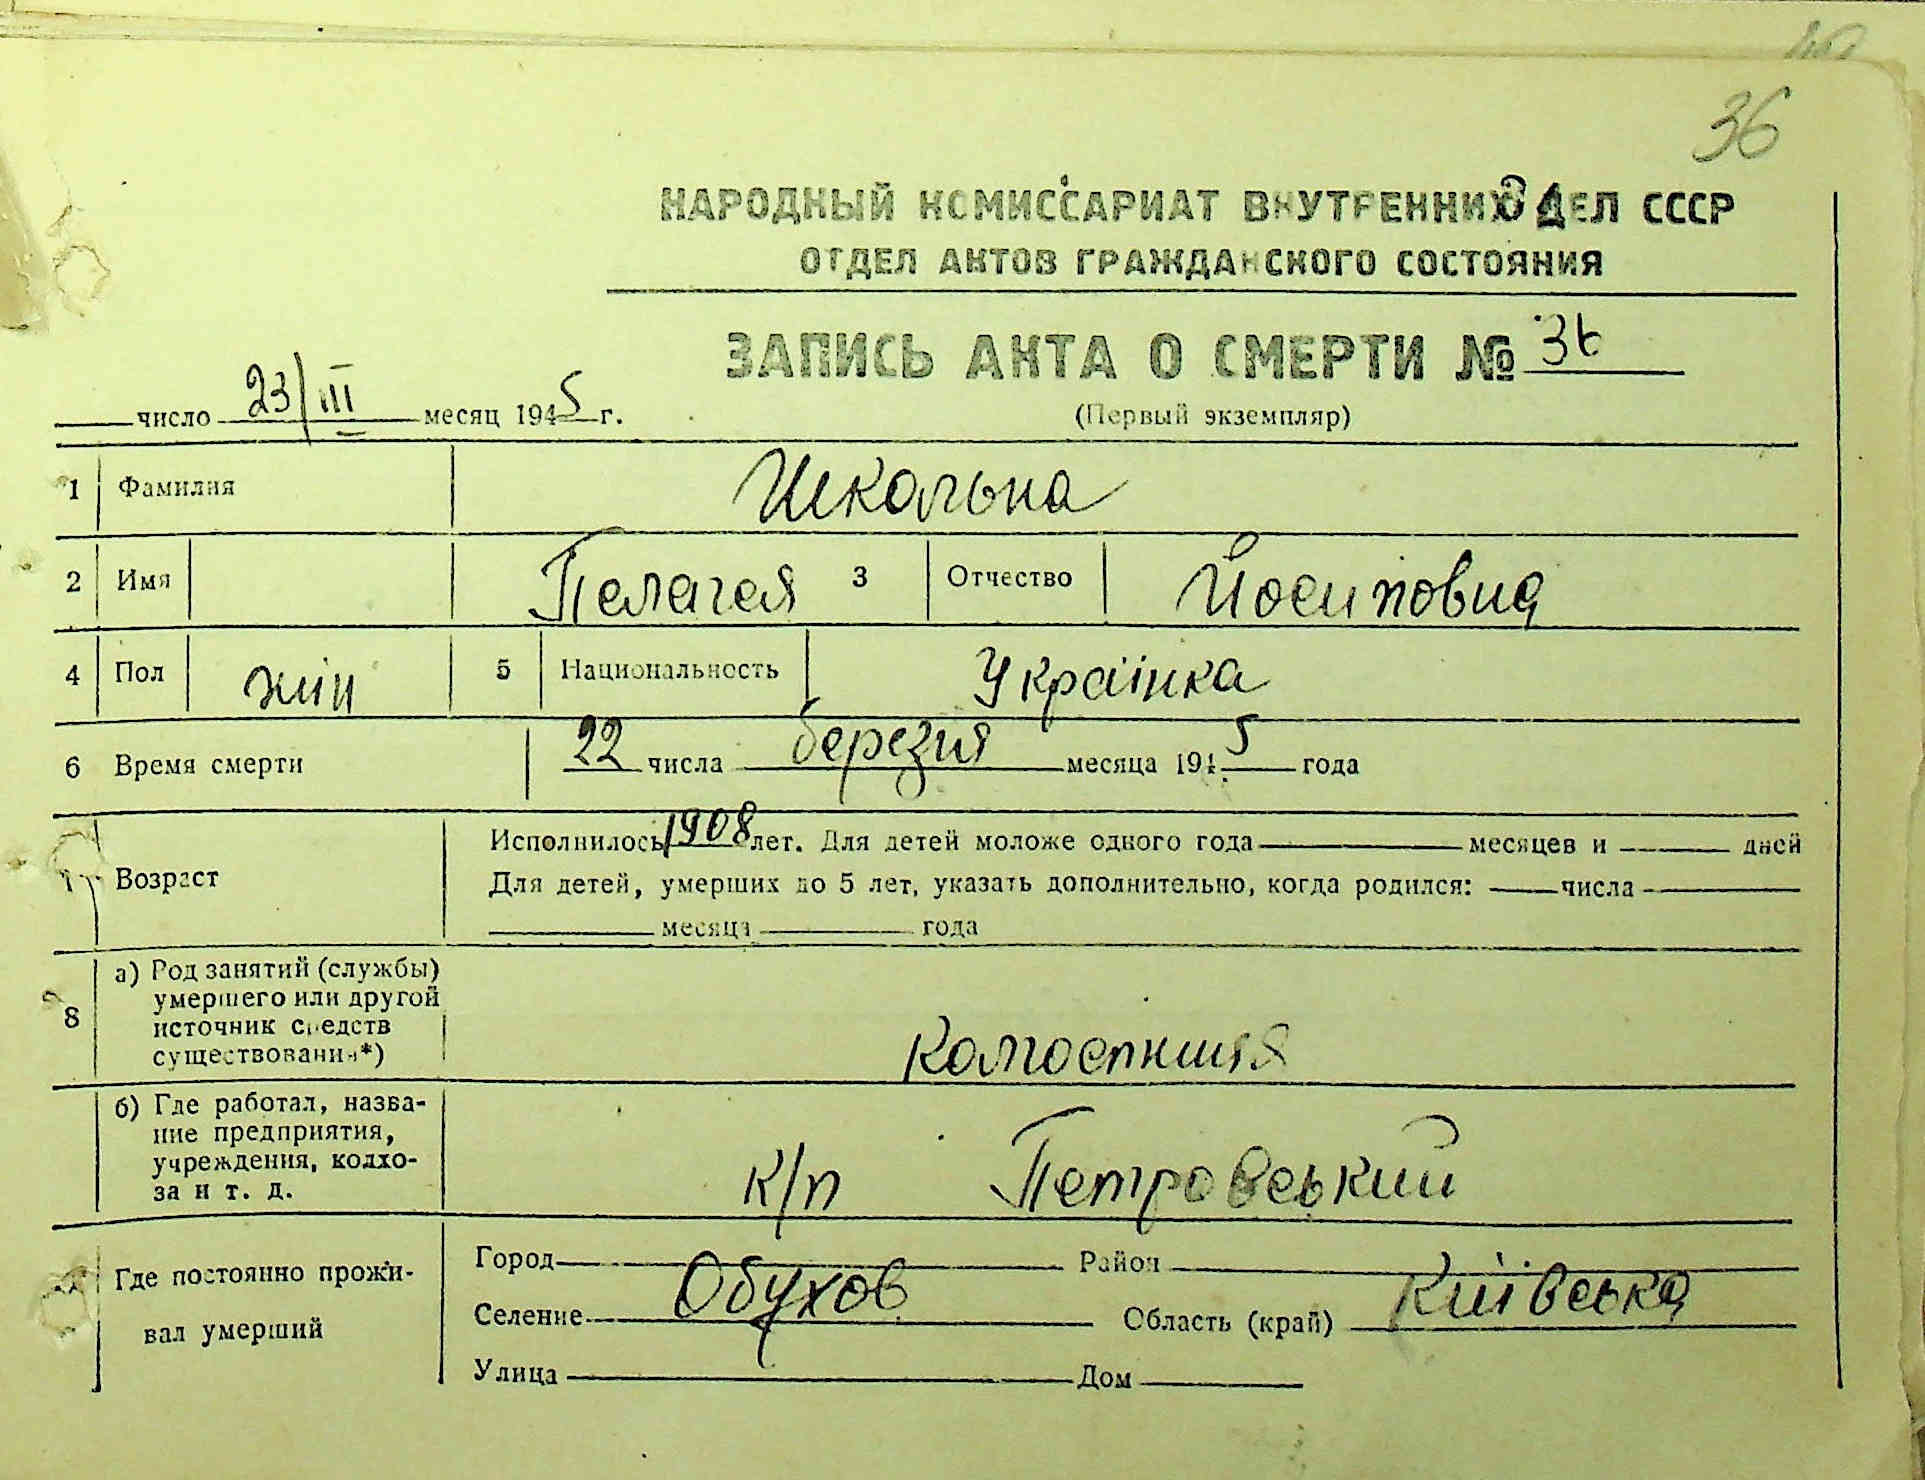 36
НАРОДНЫЙ КОМИССАРИАТ ВНУТРЕННИХ ДЕЛ СССР
ОТДЕЛ АКТОВ ГРАЖДАНСКОГО СОСТОЯНИЯ
ЗАПИСЬ АКТА О СМЕРТИ № 36
число 23/III месяц 1945 г.
(Первый экземпляр)
1 Фамилия Школьна
2 Имя Пелагея 3 Отчество Йосиповна
4 Пол жін 5 Национальность Українка
6 Время смерти 22 числа березня месяца 1945 года
Исполнилось 1908 лет. Для детей моложе одного года месяцев и дней
7 Возраст Для детей, умерших до 5 лет, указать дополнительно, когда родился: числа
месяца года
8 а) Род занятий (службы)
умершего или другой
источник средств
существования*)
Колгоспниця
б) Где работал, назва-
ние предприятия,
учреждения, колхо-
за и т. д.
к/п Петровський
Где постоянно прожи-
вал умерший
Город Район
Селение Обухов Область (край) Київська
Улица Дом